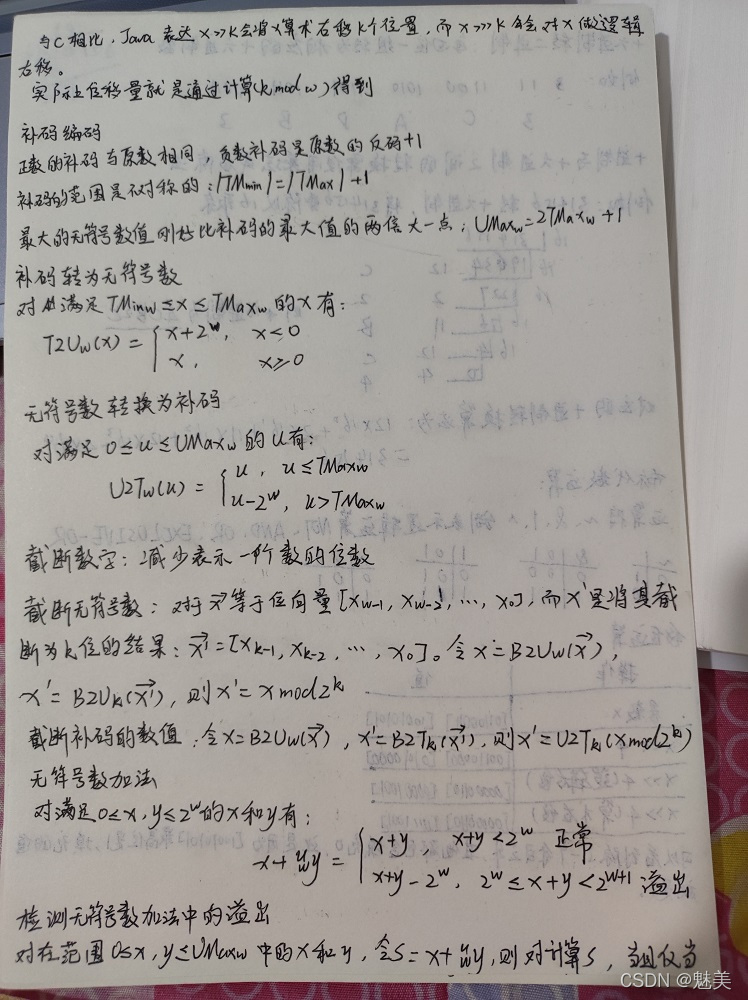 与C相比，Java 表达 x>>k会将x算术右移k个位置，而x>>>k 会对x做逻辑
右移。
实际上位移量就是通过计算(k mod w)得到
补码编码
正数的补码与原数相同，负数补码是原数的反码+1
补码的范围是不对称的：|TMin|=|TMax|+1
最大的无符号数值刚好比补码的最大值的两倍大一点；UMaxw=2TMaxw+1
补码转为无符号数
对满足 TMinw≤x≤TMaxw 的x有：
T2Uw(x) = { x+2^w, x<0
x, x≥0
无符号数转换为补码
对满足 0≤u≤UMaxw 的u有：
U2Tw(u) = { u, u≤TMaxw
u-2^w, u>TMaxw
截断数字：减少表示一个数的位数
截断无符号数：对于x⃗等于位向量[xw-1, xw-2, …, x0]，而x'是将其截
断为k位的结果：x⃗'=[xk-1, xk-2, …, x0]。令x=B2Uw(x⃗)，
x'=B2Uk(x⃗')，则x'=x mod 2^k
截断补码的数值：令x=B2Uw(x⃗)，x'=B2Tk(x⃗')，则x'=U2Tk(x mod 2^k)
无符号数加法
对满足0≤x,y≤2^w的x和y有：
x+^u_w y = { x+y x+y<2^w 正常
x+y-2^w, 2^w≤x+y<2^w+1 溢出
检测无符号数加法中的溢出
对在范围0≤x,y≤UMaxw中的x和y，令s=x+^u_w y，则对计算s，当且仅当
CSDN @魅美